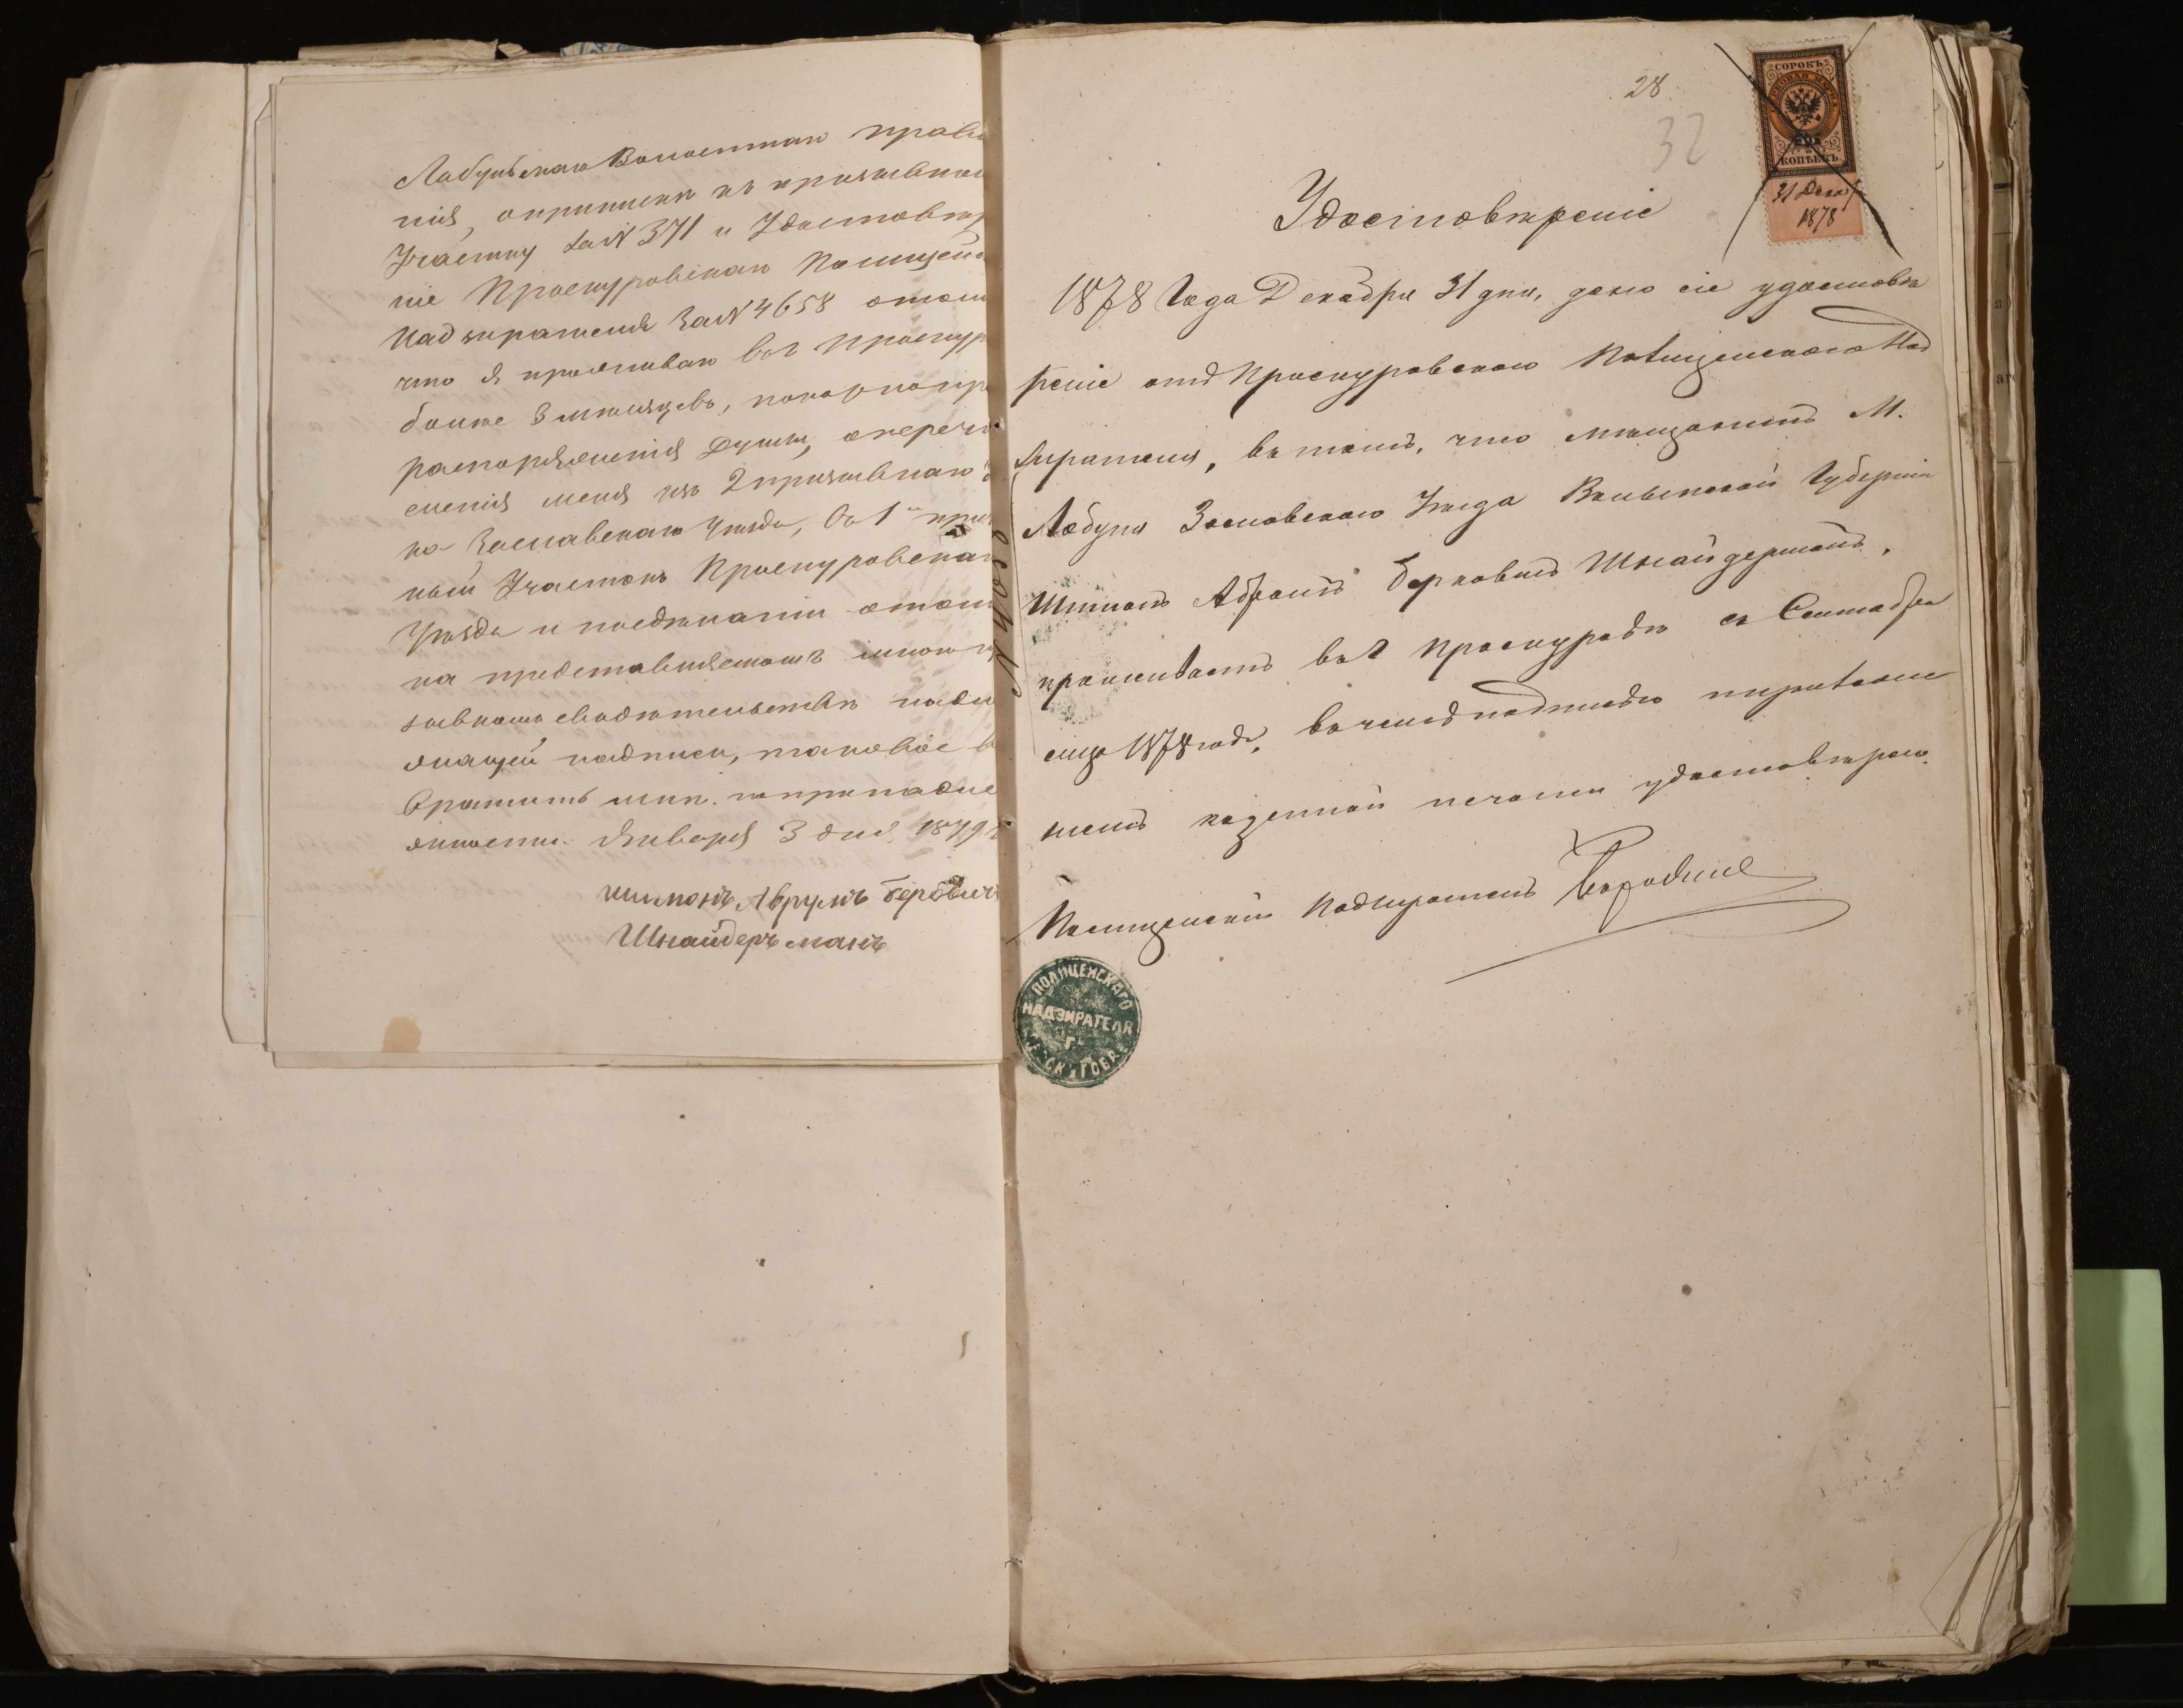 Лабунскаго Волостнаго правл
нія, о приписки къ призывном
Участку за № 371 и Удостовѣр
ніе Проскуровскаго Полицейс
Надзирателя за № 4658 о том
что я проживаю въ г Проскур
болѣе 3 мѣсяцевъ, покорно пр
распоряженія Думы, о переч
сленія меня изъ 2 призывнаго
ка Заславскаго уѣзда, въ 1й приз
ный Участокъ Проскуровскаг
Уѣзда и последованіи о том
на представляемомъ мною пр
зывномъ свидѣтельствѣ надл
жащей надписи, таковое в
вратить мнѣ. по принадле
жности. Января 3 дня 1879 г
Шимонъ Аврумъ Берковичъ
Шнайдерманъ
28
32
СОРОКЪ
40
КОПѢЕКЪ.
31 Дека
1878
Удостовѣреніе
1878 Года Декабря 31 дня, дано сіе удостовѣ
реніе отъ Проскуровскаго Полицейскаго Над
зирателя, въ томъ, что мѣщанинъ М.
Лабуня Заславскаго Уѣзда Волынской Губерніи
Шимонъ Абрамъ Берковъ Шнайдерманъ,
проживаетъ въ г Проскуровѣ съ Сентября
сяца 1878 года, въ чемъ подписью и приложе
ніемъ казенной печати удостовѣряю.
Полицейскій Надзиратель
ПОЛИЦЕЙСКАГО
НАДЗИРАТЕЛЯ
Г.